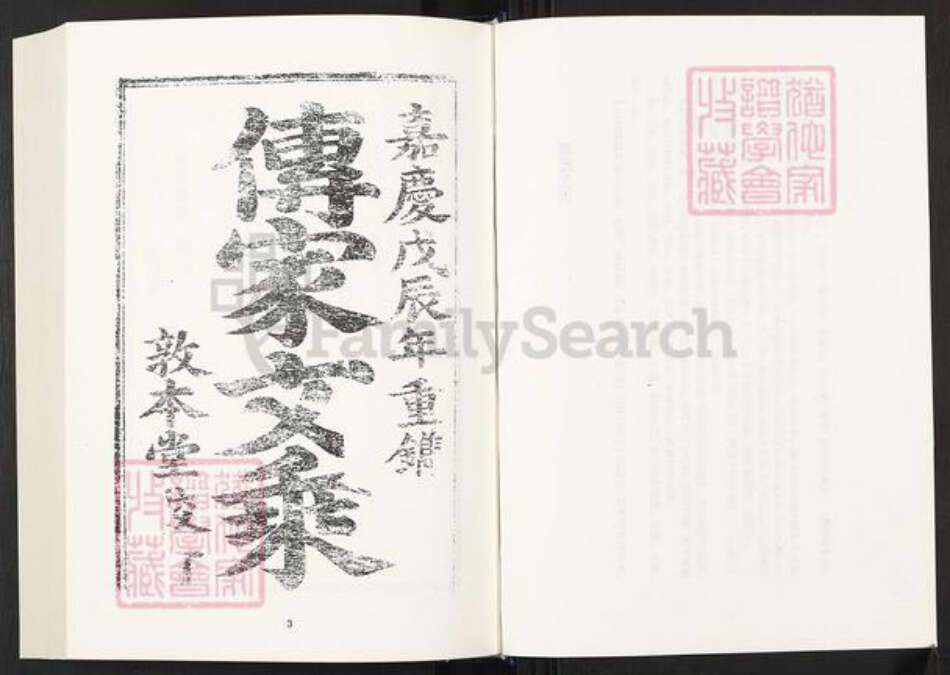 嘉慶戊辰年重鐫
傳家文乘
敦本堂
3
猶他家
譜學會
收藏
猶他家
譜學會
收藏
FamilySearch